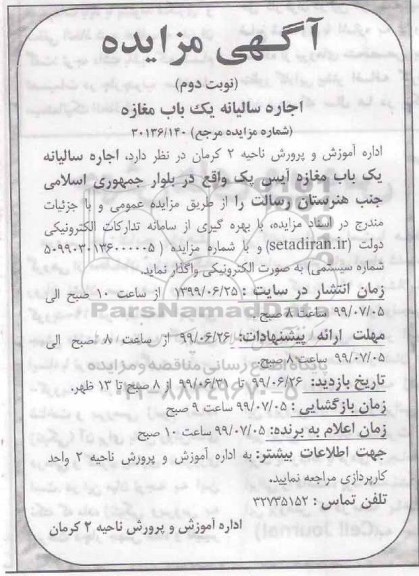 آگهی مزایده
(نوبت دوم)
اجاره سالیانه یک باب مغازه
(شماره مزایده مرجع) ۳۰۱۳۶/۱۴۰
اداره آموزش و پرورش ناحیه ۲ کرمان در نظر دارد، اجاره سالیانه
یک باب مغازه آیس پک واقع در بلوار جمهوری اسلامی
جنب هنرستان رسالت را از طریق مزایده عمومی و با جزئیات
مندرج در اسناد مزایده، با بهره گیری از سامانه تدارکات الکترونیکی
دولت (setadiran.ir) و با شماره مزایده (۵۰۹۹۰۳۰۱۳۶۰۰۰۰۰۵
شماره سیستمی) به صورت الکترونیکی واگذار نماید.
زمان انتشار در سایت : ۱۳۹۹/۰۶/۲۵ از ساعت ۱۰ صبح الی
۹۹/۰۷/۰۵ ساعت ۸ صبح.
مهلت ارائه پیشنهادات: ۹۹/۰۶/۲۶ از ساعت ۸ صبح الی
۹۹/۰۷/۰۵ ساعت ۸ صبح.
تاریخ بازدید: ۹۹/۰۶/۲۶ تا ۹۹/۰۶/۳۱ از ۸ صبح تا ۱۳ ظهر.
زمان بازگشایی : ۹۹/۰۷/۰۵ ساعت ۹ صبح
زمان اعلام به برنده: ۹۹/۰۷/۰۵ ساعت ۱۰ صبح
جهت اطلاعات بیشتر: به اداره آموزش و پرورش ناحیه ۲ واحد
کارپردازی مراجعه نمایید.
تلفن تماس : ۳۲۷۳۵۱۵۲
اداره آموزش و پرورش ناحیه ۲ کرمان